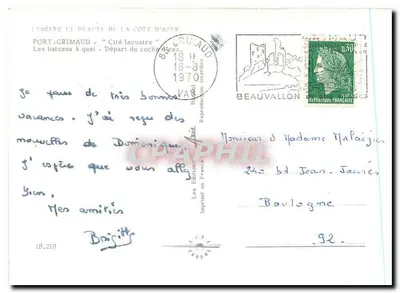 LUMIERE ET BEAUTE DE LA COTE D'AZUR
PORT-GRIMAUD - " Cité lacustre "
Les bateaux à quai - Départ du coche d'eau
18 H
18-8
1970
VAR
BEAUVALLON
0,30
REPUBLIQUE FRANÇAISE
Je passe de très bonnes
vacances. J'ai reçu des
nouvelles de Dominique.
J'espère que vous allez
bien.
Mes amitiés
Brigitte
18.219
Imprimé en France
Monsieur & Madame
240 bd Jean-Jaurès
Boulogne
92.